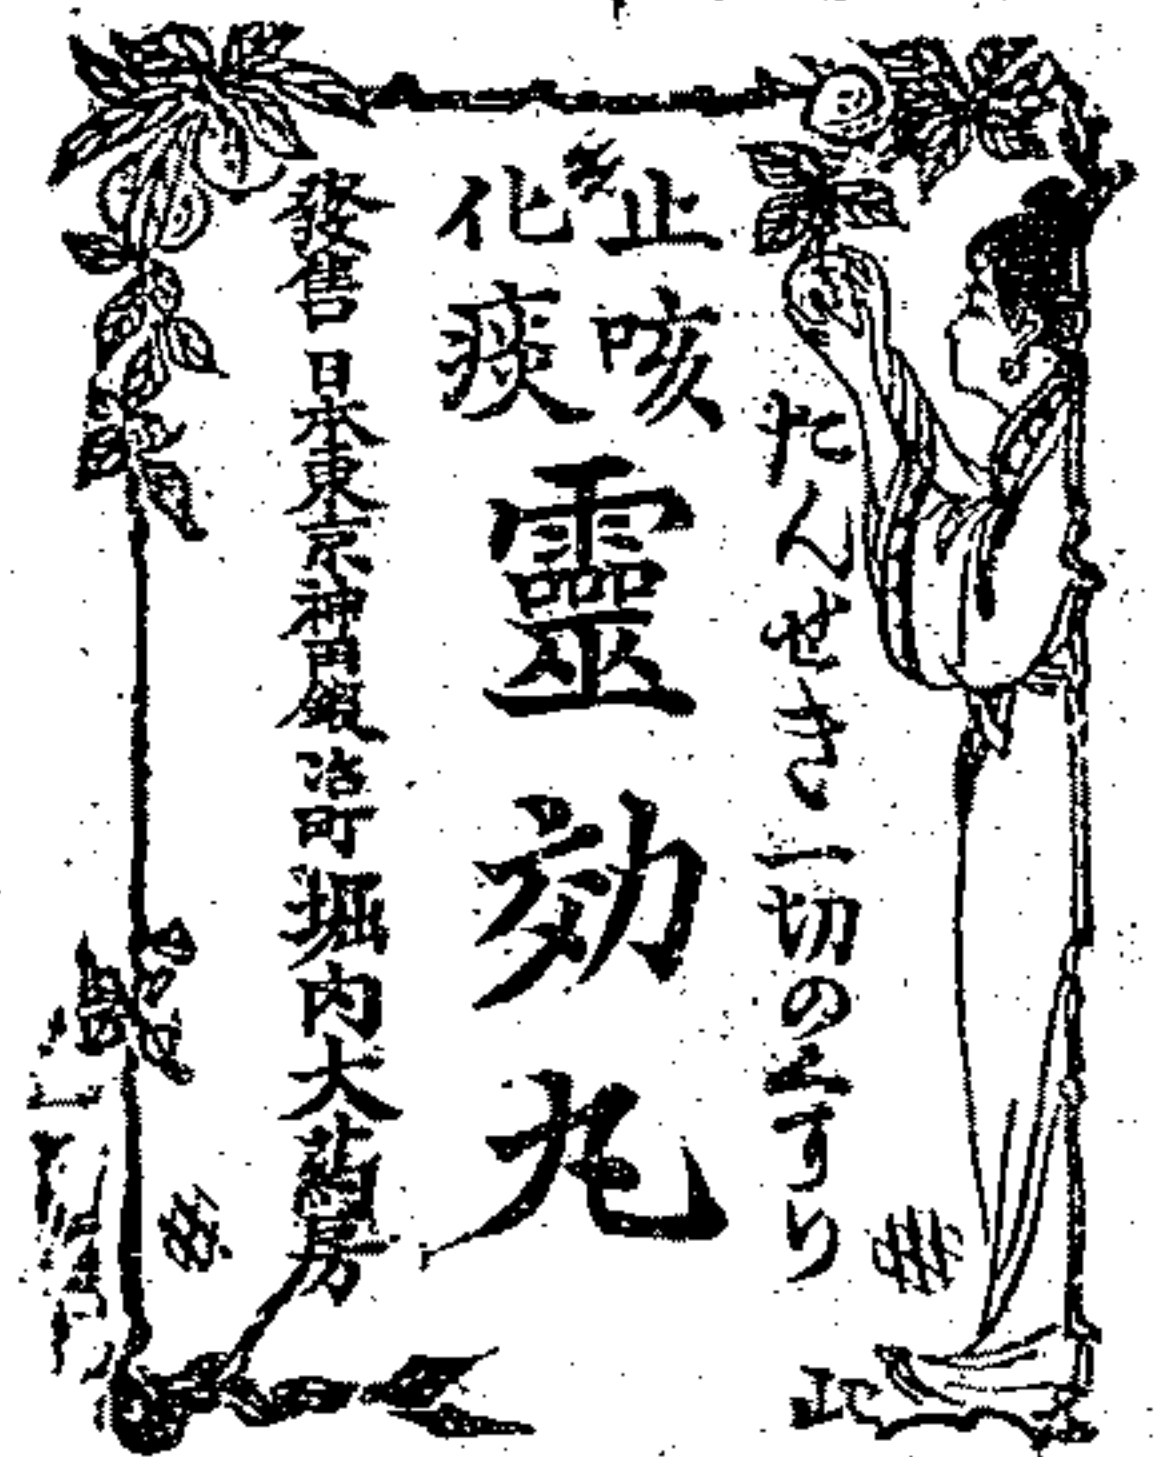 たんせき一切の王すり
止咳
化痰
靈効丸
發售 日本東京神田鍛冶町 堀内大藥房